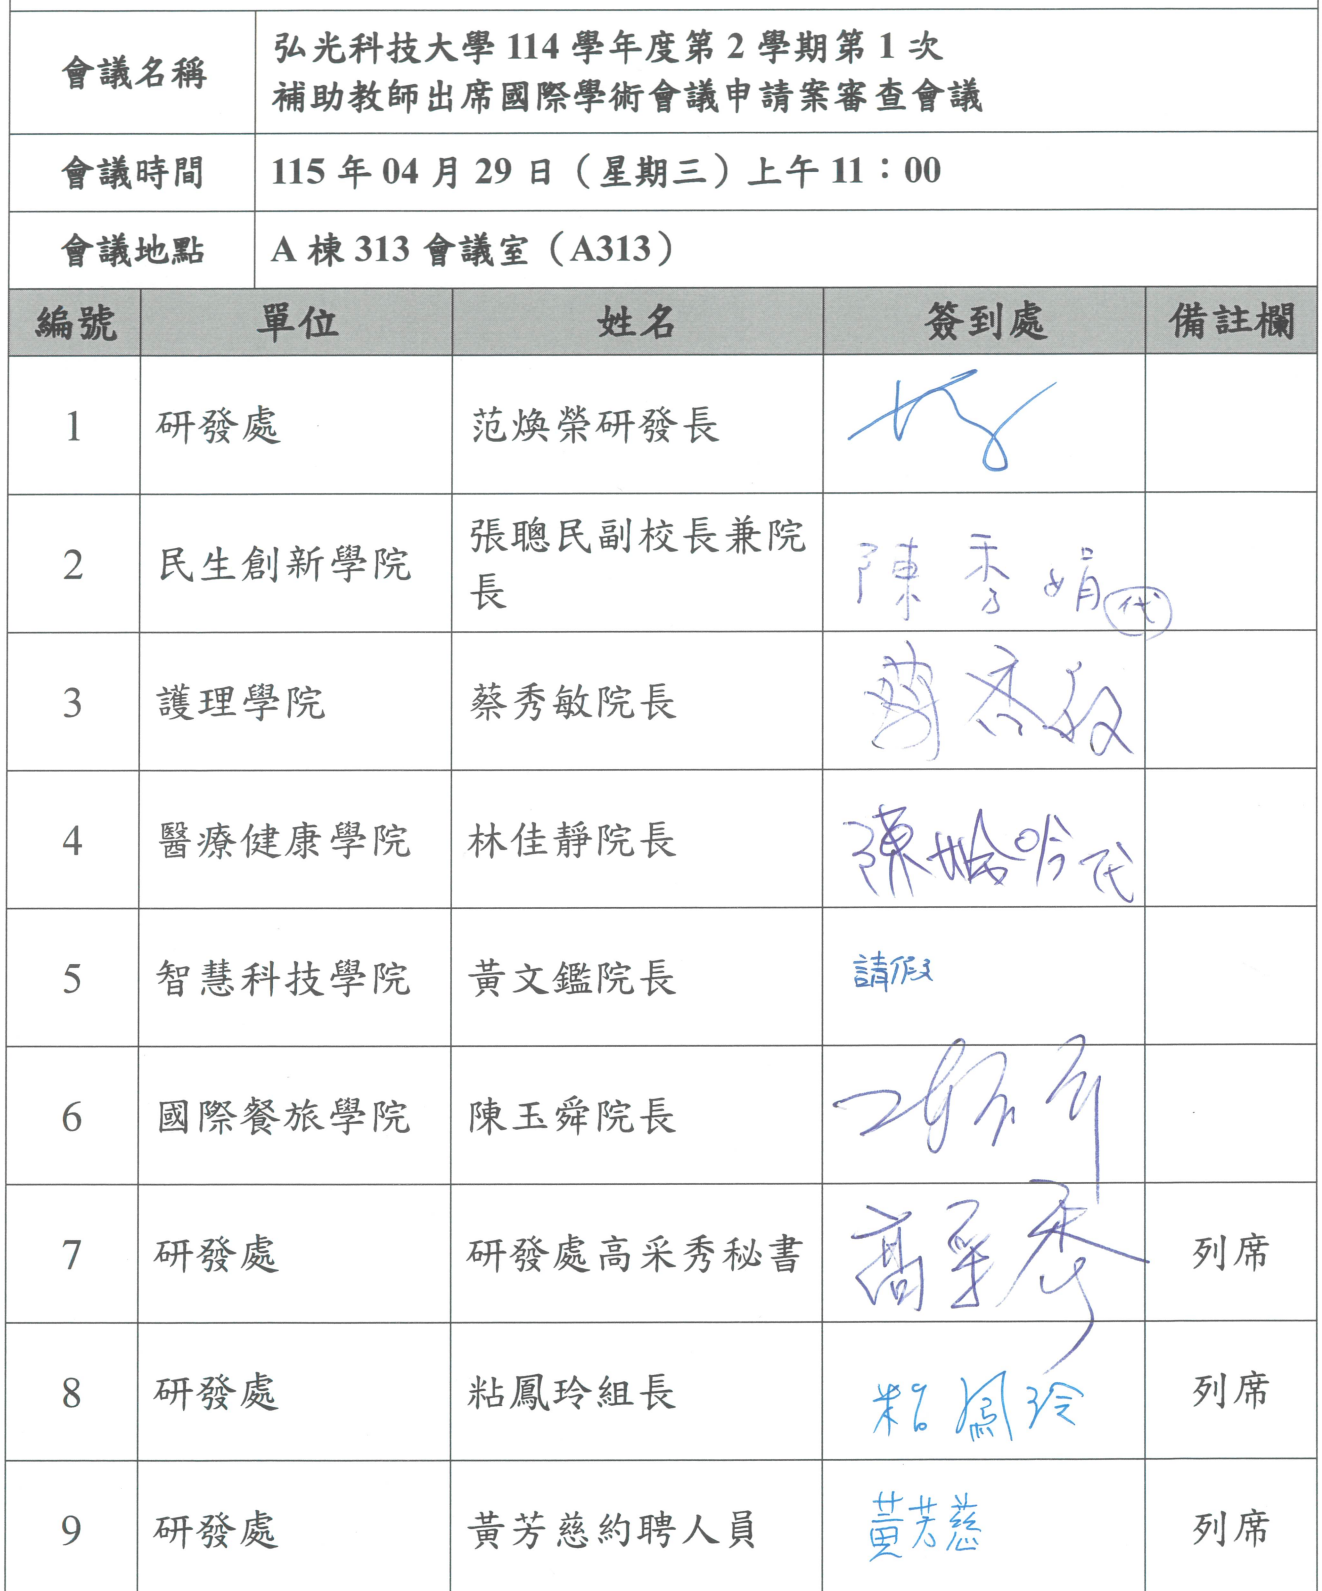 會議名稱
弘光科技大學 114 學年度第 2 學期第 1 次
補助教師出席國際學術會議申請案審查會議
會議時間
115 年 04 月 29 日（星期三）上午 11：00
會議地點
A 棟 313 會議室（A313）
編號 單位 姓名 簽到處 備註欄
1 研發處 范煥榮研發長
2 民生創新學院 張聰民副校長兼院
長
陳秀娟代
3 護理學院 蔡秀敏院長 蔡秀敏
4 醫療健康學院 林佳靜院長 陳姶吟代
5 智慧科技學院 黃文鑑院長 請假
6 國際餐旅學院 陳玉舜院長
7 研發處 研發處高采秀秘書 高采秀 列席
8 研發處 粘鳳玲組長 粘鳳玲 列席
9 研發處 黃芳慈約聘人員 黃芳慈 列席